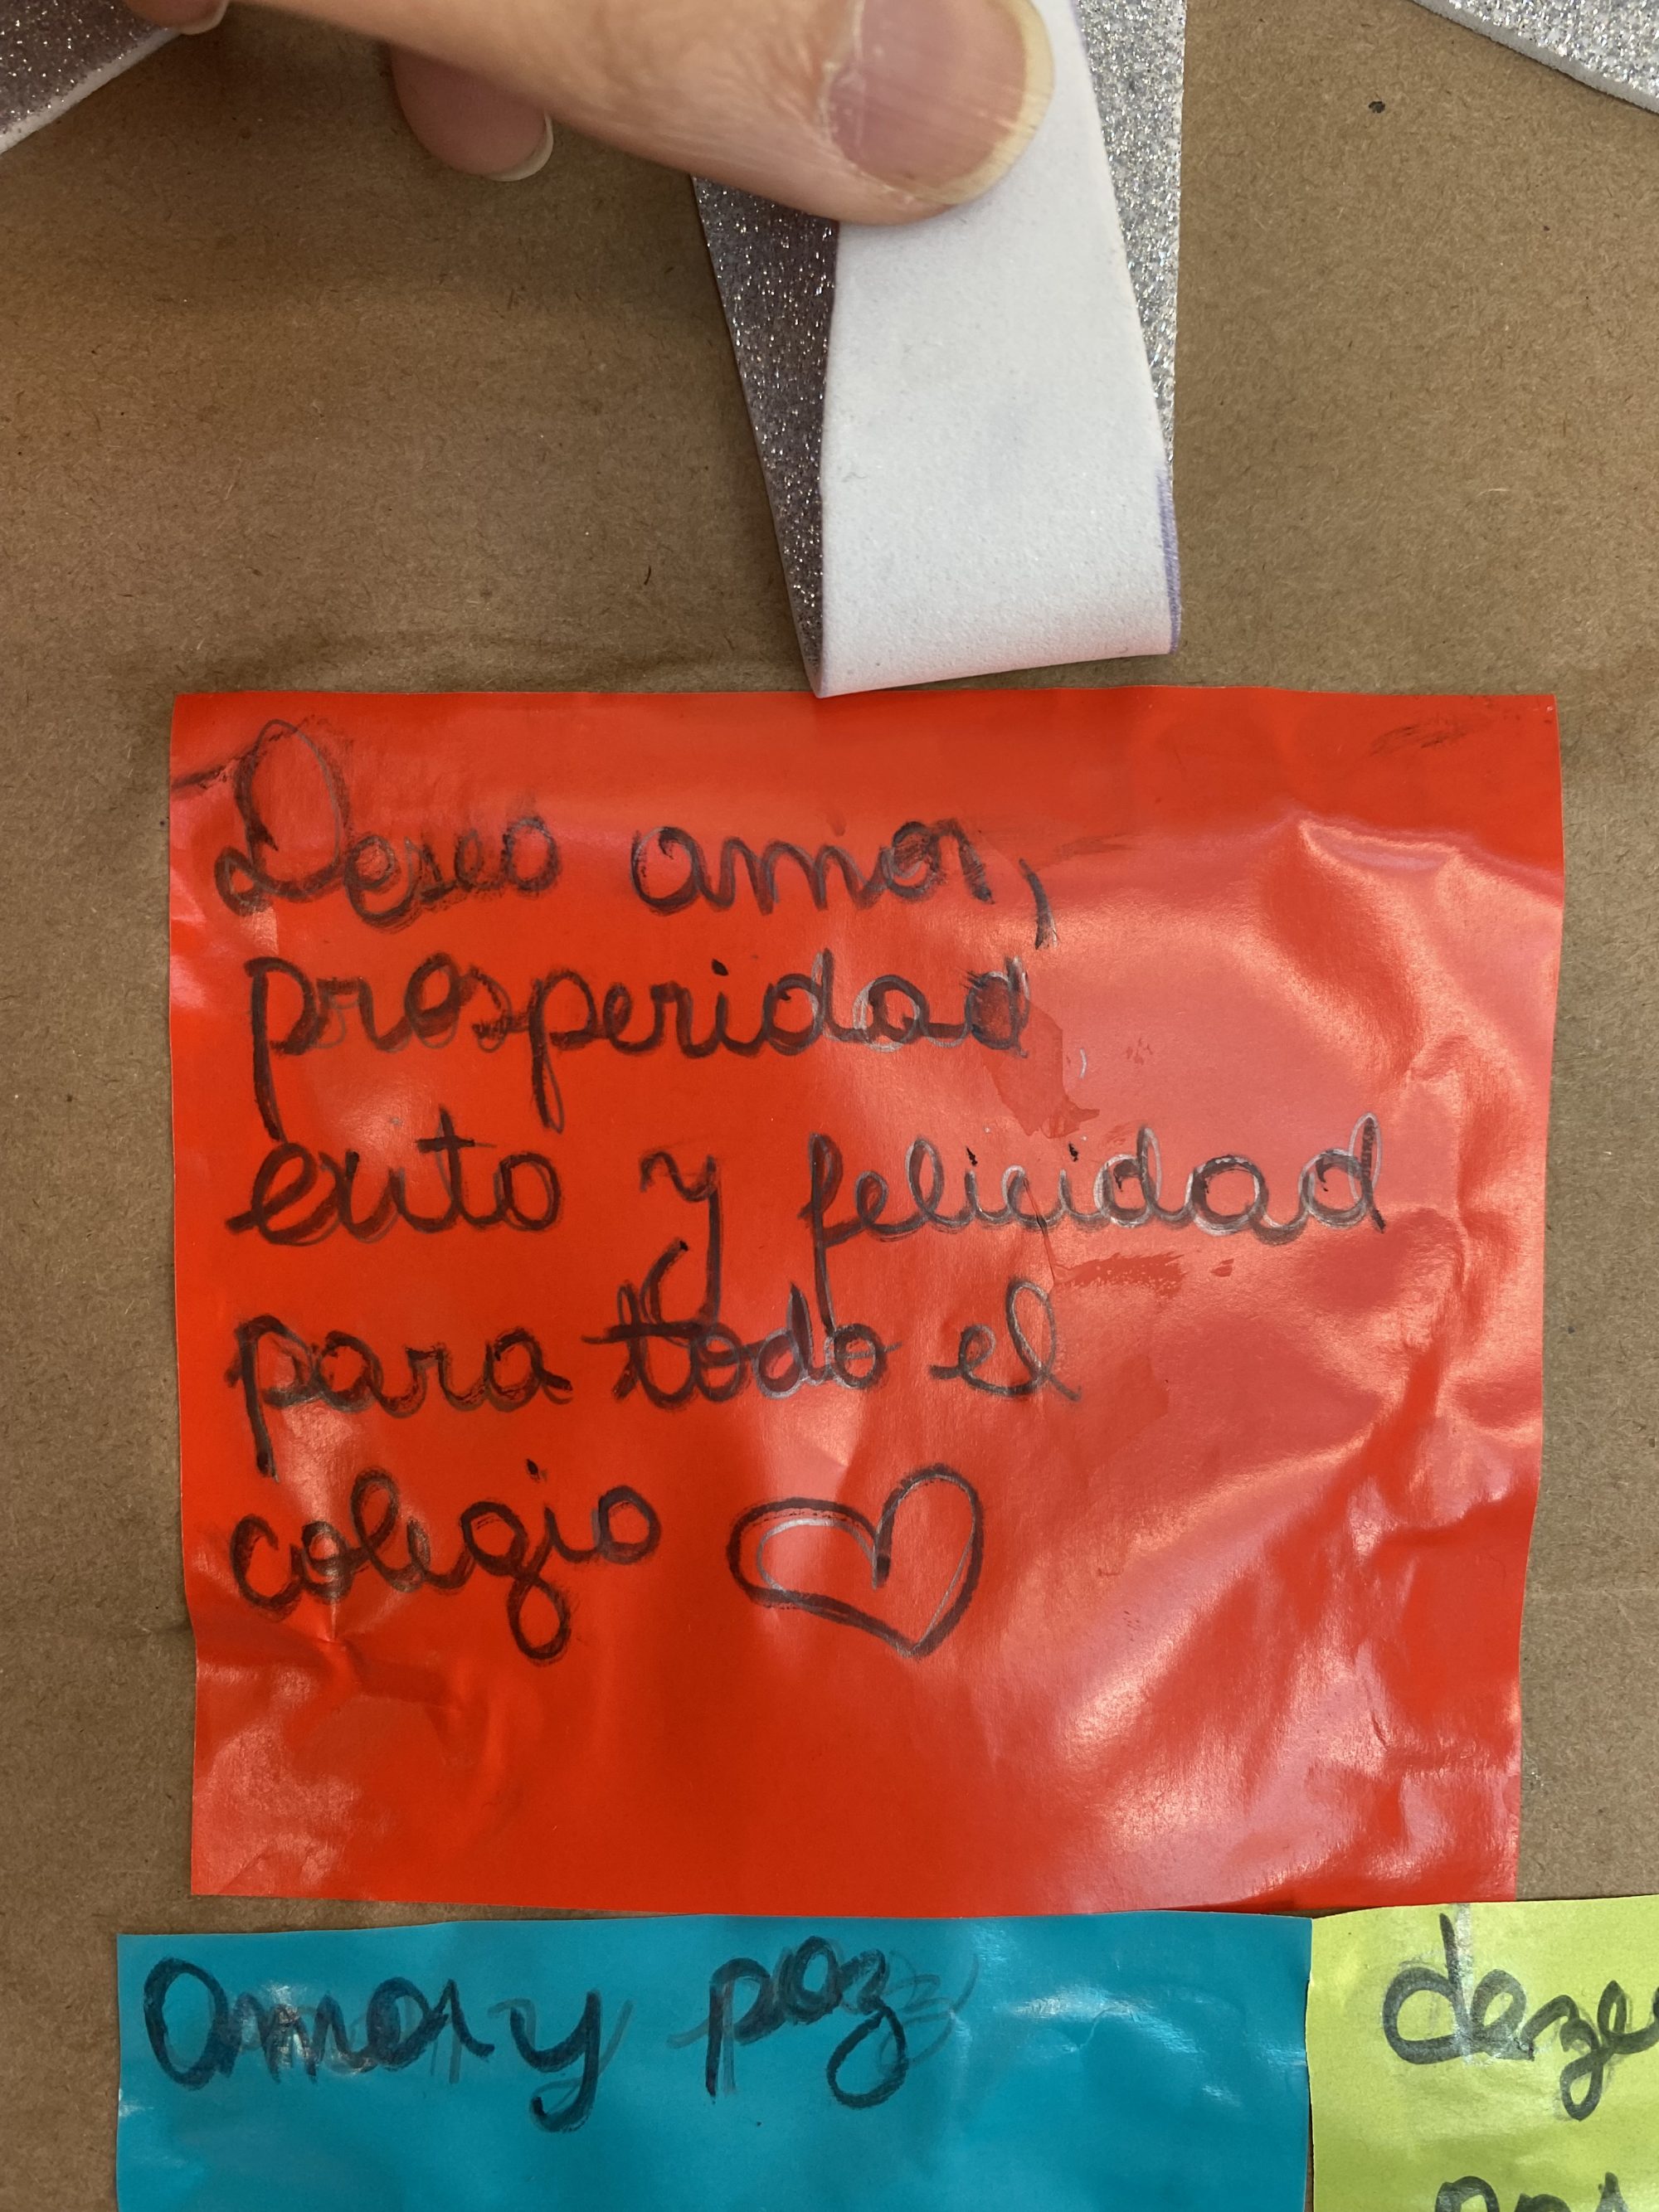 Deseo amor,
prosperidad
exito y felicidad
para todo el
colegio
Amor y paz